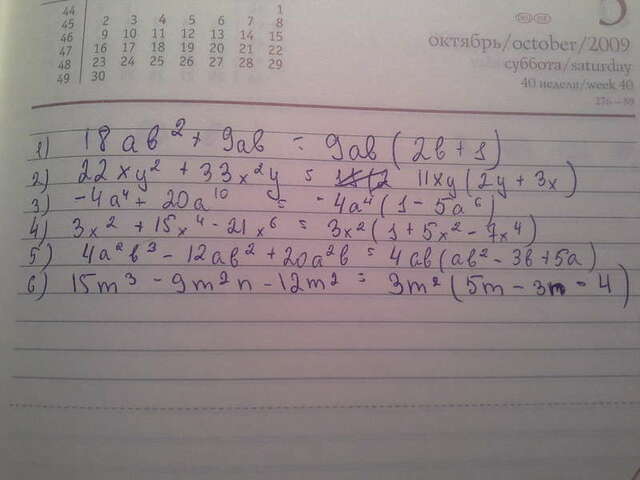 44 1
45 2 3 4 5 6 7 8
46 9 10 11 12 13 14 15
47 16 17 18 19 20 21 22
48 23 24 25 26 27 28 29
49 30
5
октябрь/october/2009
суббота/saturday
40 недели/week 40
276–89
1) 18ab² + 9ab = 9ab(2b + 1)
2) 22xy² + 33x²y = 11xy(2y + 3x)
3) -4a⁴ + 20a¹⁰ = -4a⁴(1 - 5a⁶)
4) 3x² + 15x⁴ - 21x⁶ = 3x²(1 + 5x² - 7x⁴)
5) 4a²b³ - 12ab² + 20a²b = 4ab(ab² - 3b + 5a)
6) 15m³ - 9m²n - 12m² = 3m²(5m - 3n - 4)